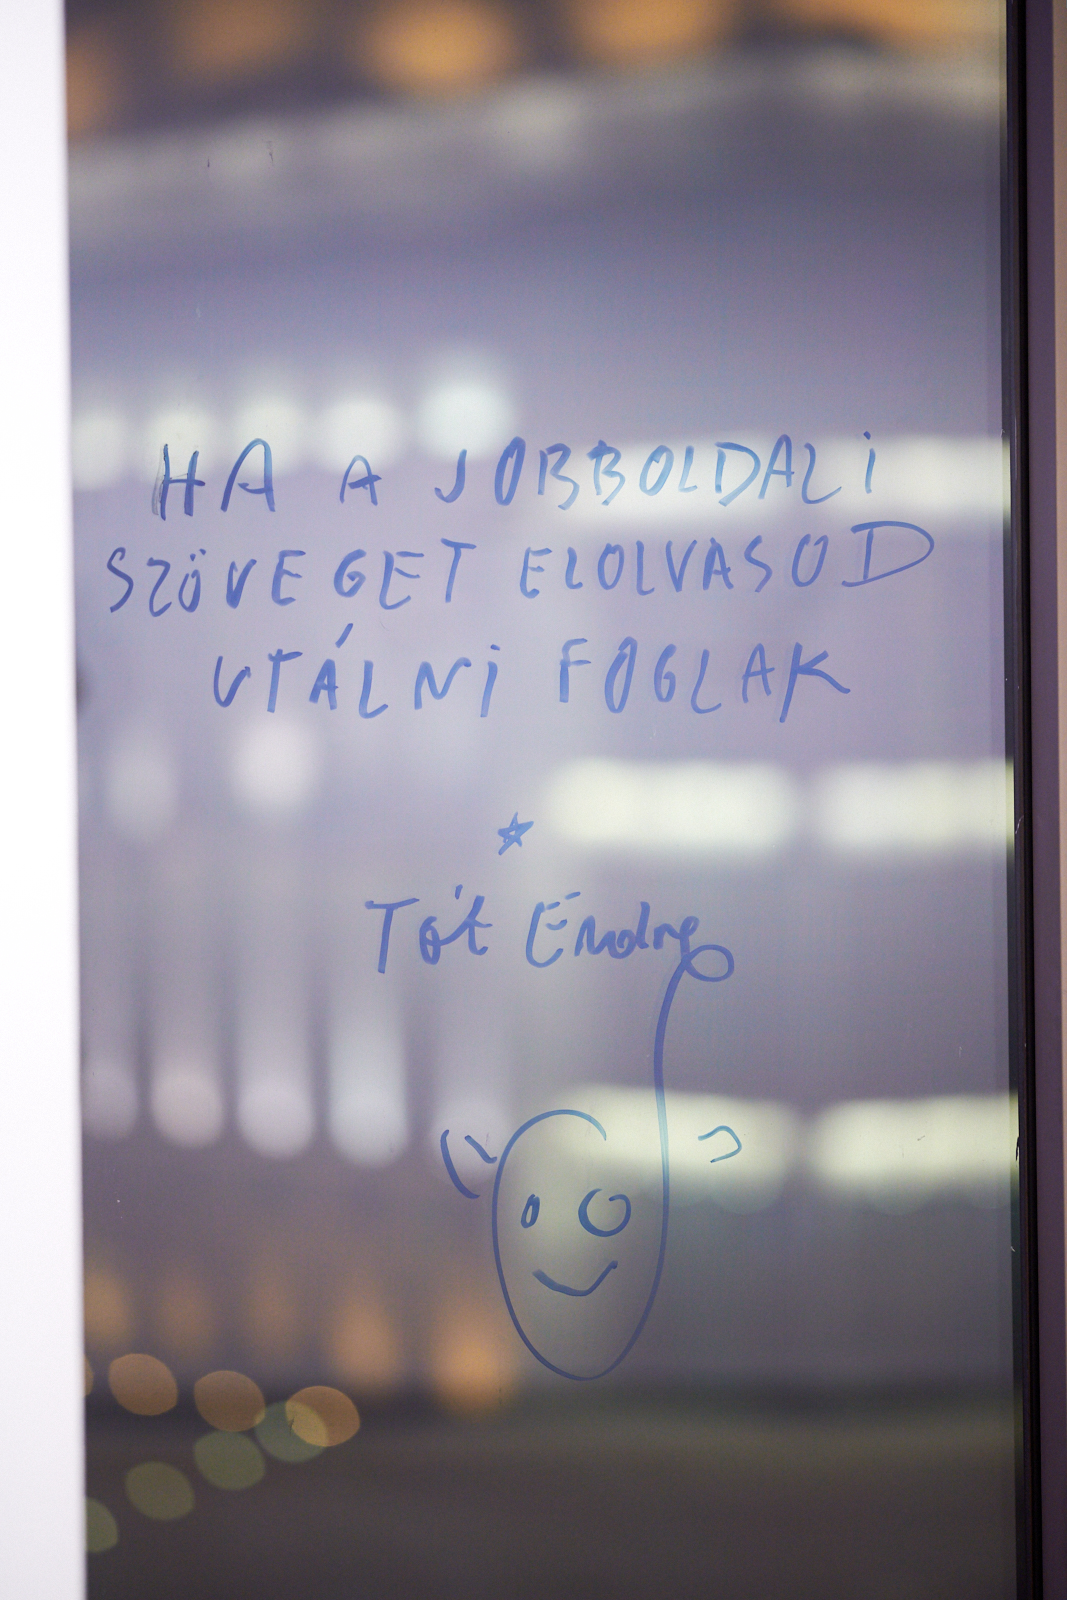 HA A JOBBOLDALI
SZÖVEGET ELOLVASOD
UTÁLNI FOGLAK
Tót Endre